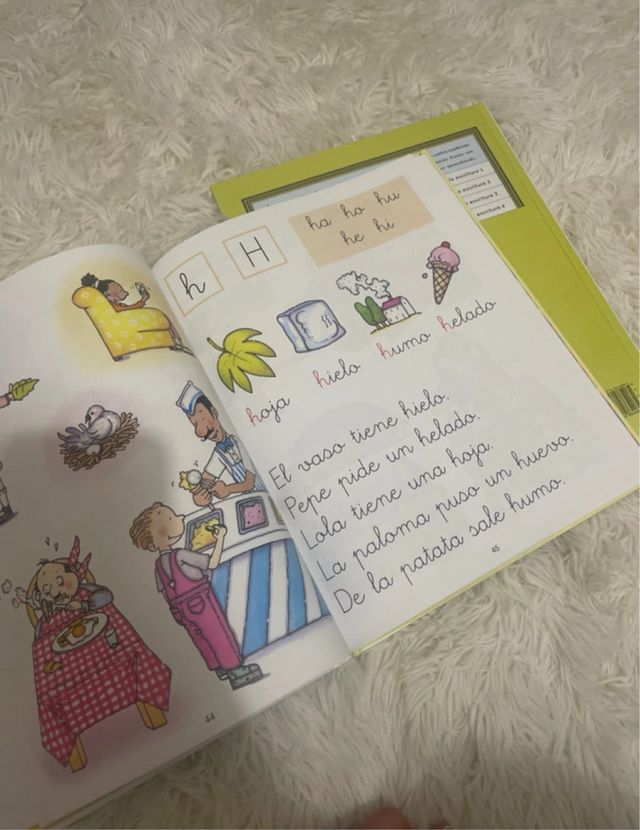 h
H
ha ho hu
he hi
hoja
hielo
humo
helado
El vaso tiene hielo.
Pepe pide un helado.
Lola tiene una hoja.
La paloma puso un huevo.
De la patata sale humo.
45
44
escritura 4